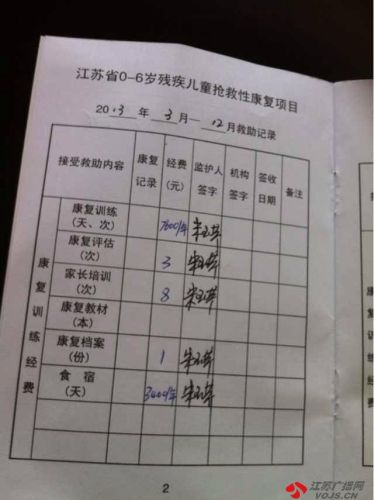 江苏省0-6岁残疾儿童抢救性康复项目
2013 年 3月—12月救助记录
接受救助内容 康复记录 经费(元) 监护人签字 机构签字 签收日期 备注
康复训练经费
康复训练(天、次) 7600/年
康复评估(次) 3
家长培训(次) 8
康复教材(本)
康复档案(份) 1
食 宿(天) 3400/年
2
江苏广播网
VOJS.CN